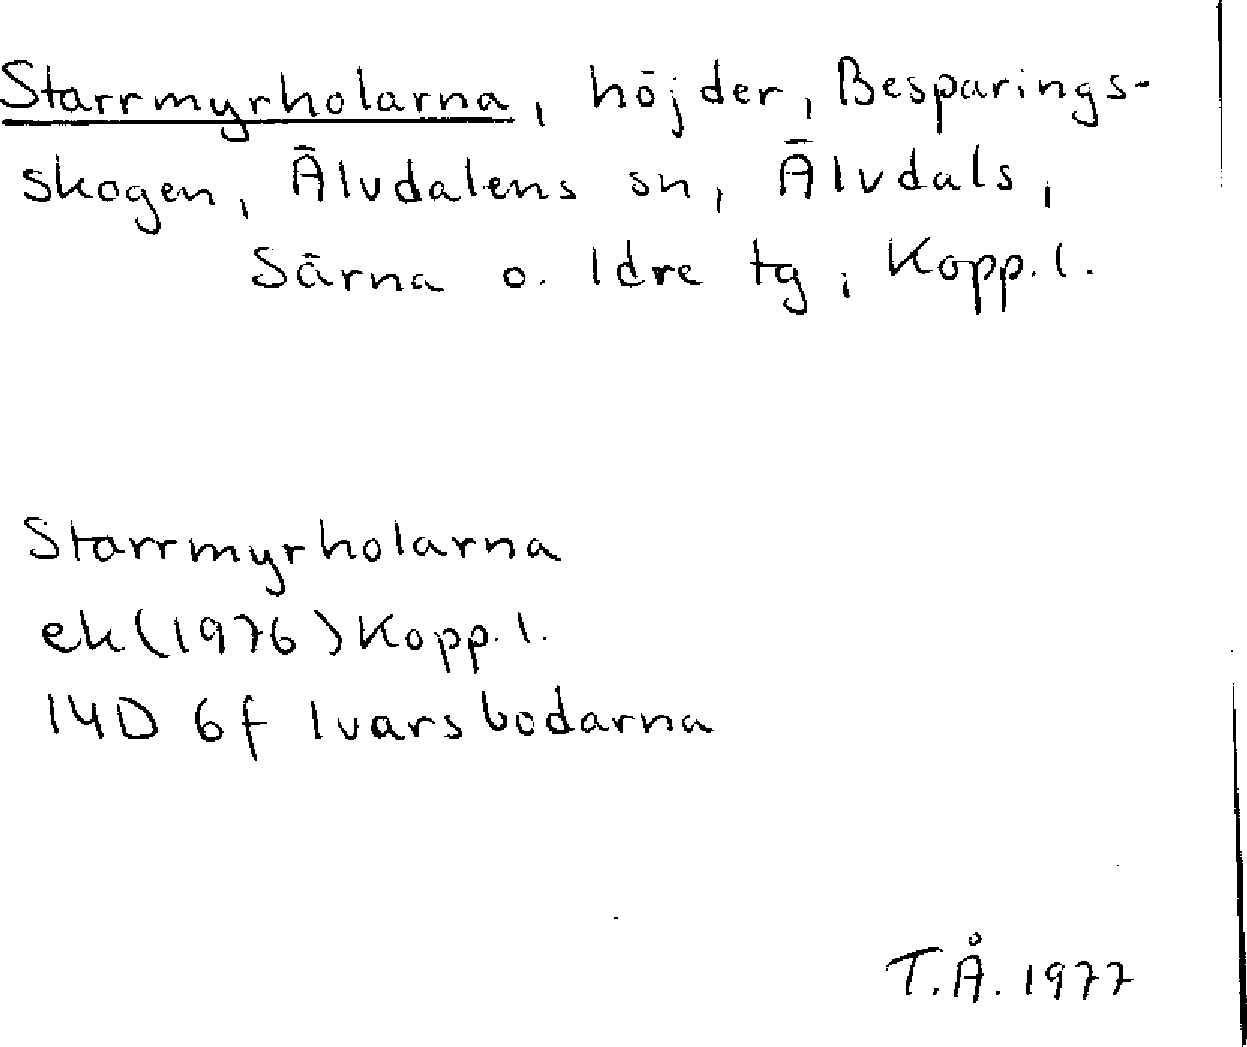 Starrmyrholarna, höjder, Besparings-
skogen, Älvdalens sn, Älvdals,
Särna o. Idre tg, Kopp. l.
Starrmyrholarna
ek (1976) Kopp. l.
14D 6f Ivarsbodarna
T.Å. 1977